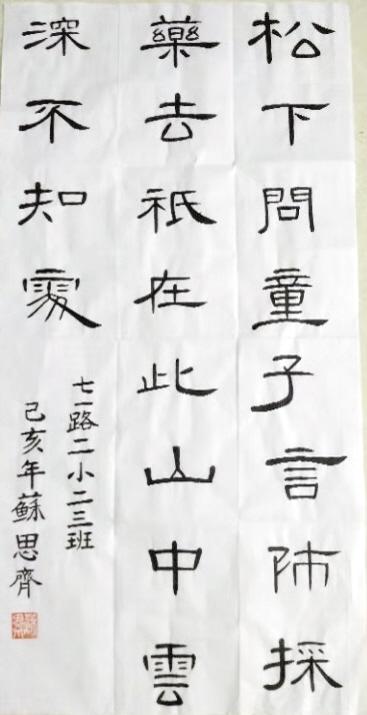 松下問童子言师採
藥去祇在此山中雲
深不知處
七一路二小二三班
己亥年蘇思齊